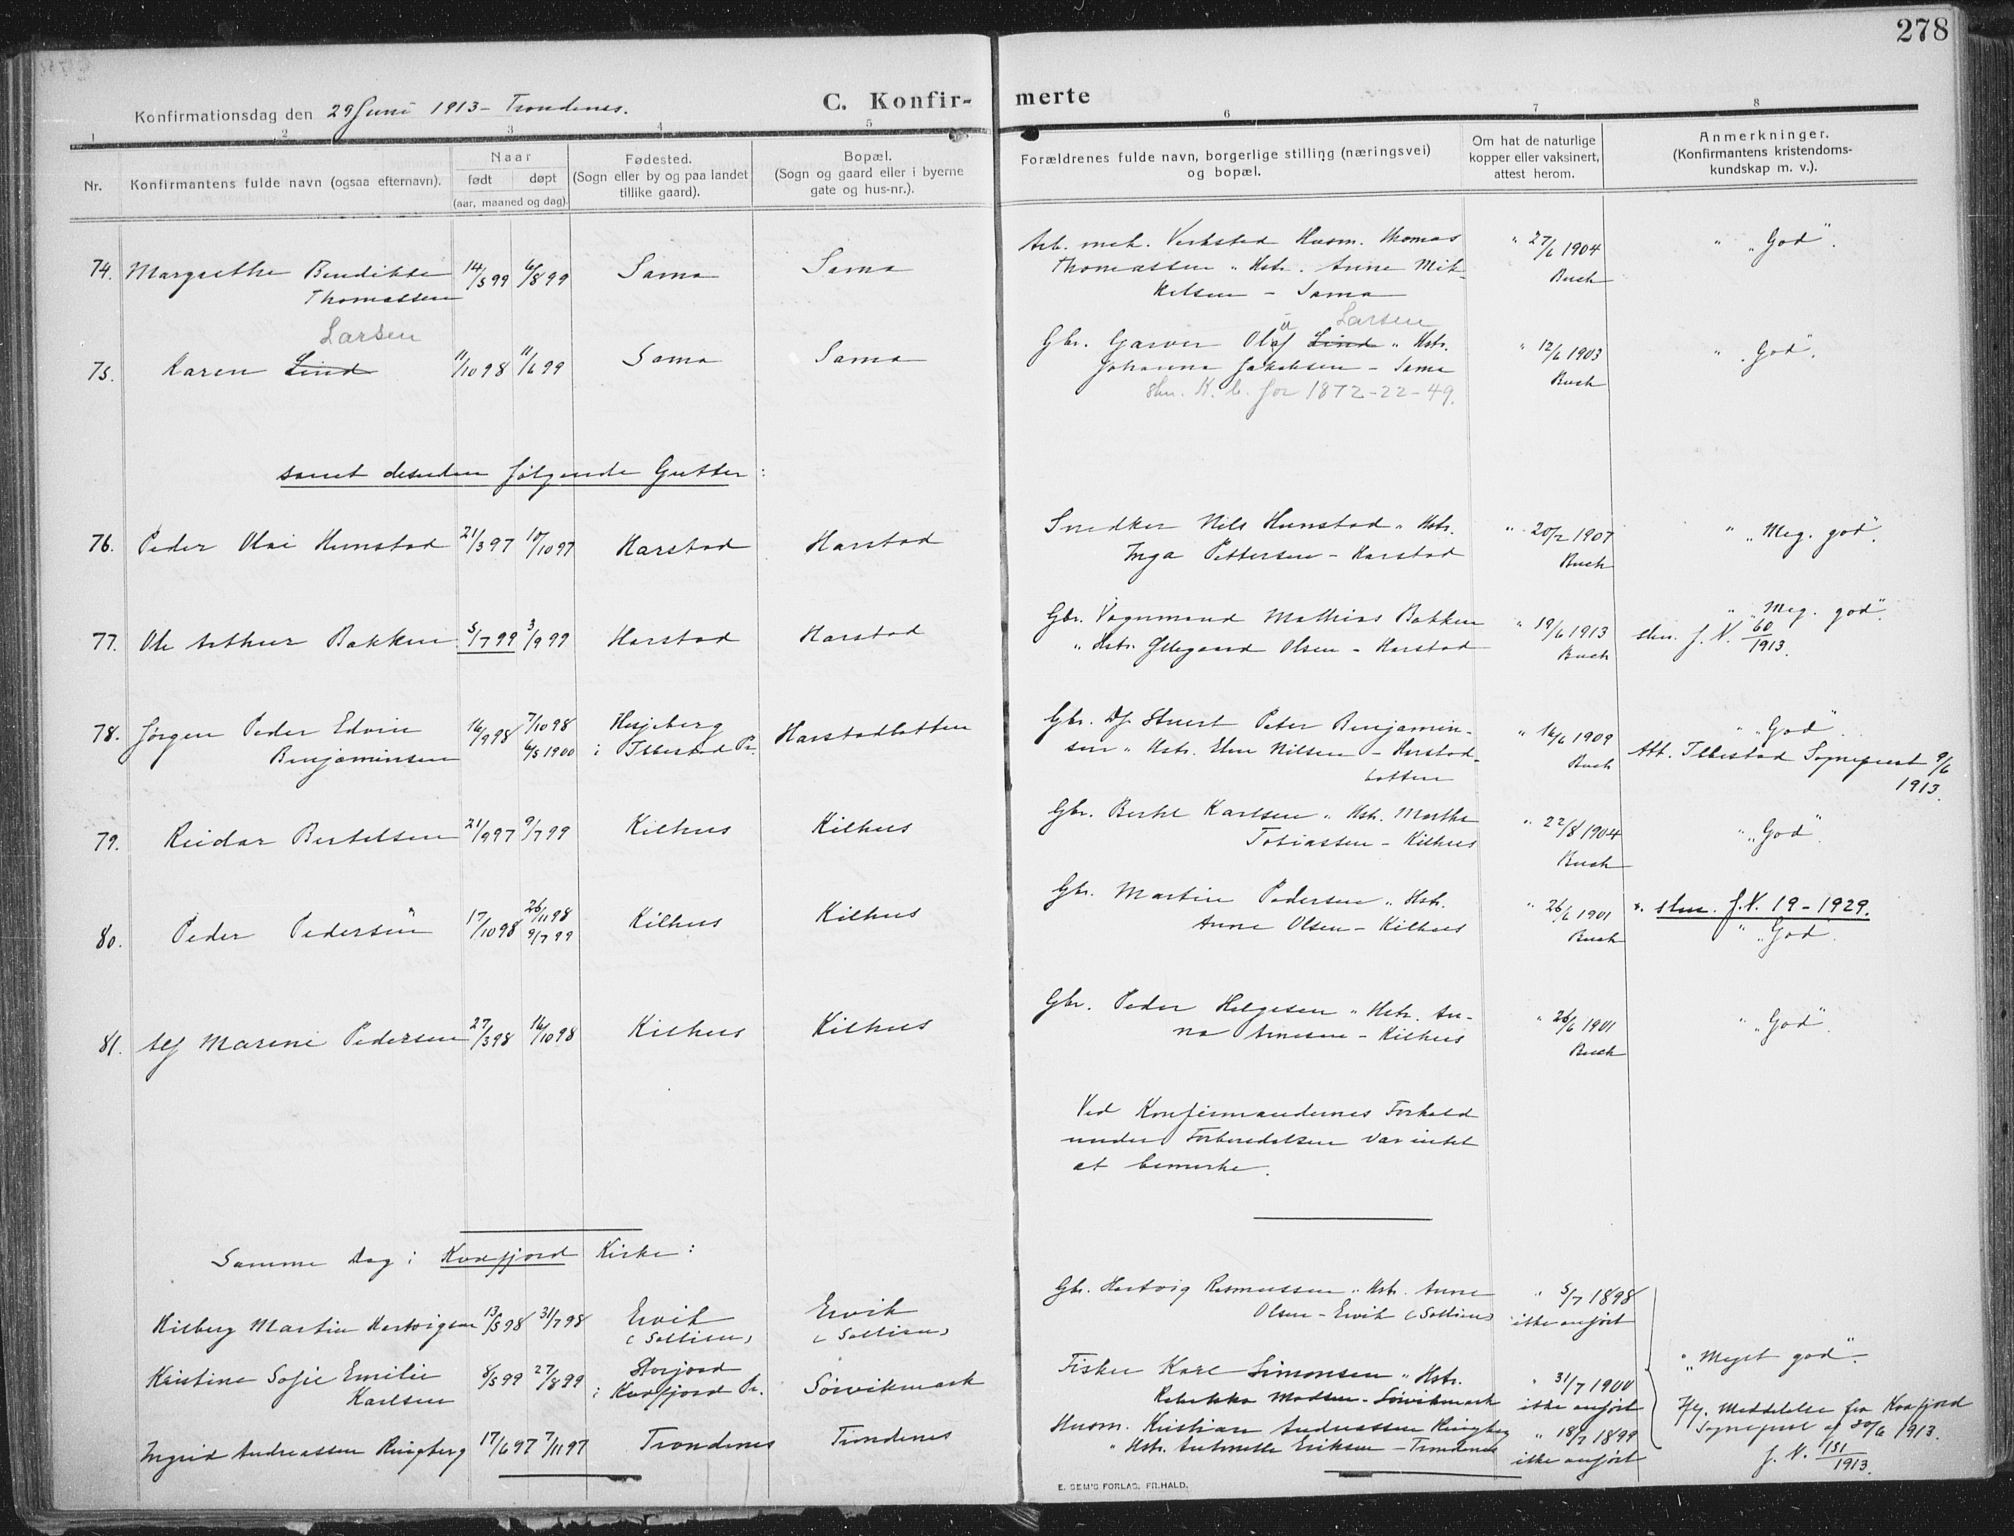 278
Konfirmationsdag den 29 Juni 1913 - Trondenes.
C. Konfir- merte
1 2 3 4 5 6 7 8
Nr. Konfirmantens fulde navn (ogsaa efternavn).
Naar
født døpt
(aar, maaned og dag).
Fødested.
(Sogn eller by og paa landet
tillike gaard).
Bopæl.
(Sogn og gaard eller i byerne
gate og hus-nr.).
Forældrenes fulde navn, borgerlige stilling (næringsvei)
og bopæl.
Om hat de naturlige
kopper eller vaksinert,
attest herom.
Anmerkninger.
(Konfirmantens kristendoms-
kundskap m. v.).
74. Margrethe Bendikte 14/5 99 6/8 99 Sama Sama
Thomassen
Arb. mek. Verksted Husm. Thomas
Thomassen " Hstr. Anne Mik-
kelsen - Sama
" 27/6 1904
Buch
" "God".
Larsen
75. Karen Lind 11/10 98 11/6 99 Sama Sama
Larsen
Gbr. Garver Olaf Lind " Hstr.
Johanna Jakobsen - Sama
skr. K. b. for 1872-22-49.
" 12/6 1903
Buch
" "God".
samt desuden følgende Gutter:
76. Peder Olai Hunstad 21/3 97 10/10 97 Harstad Harstad
Snedker Nils Hunstad " Hstr.
Inga Pettersen - Harstad
" 20/2 1907
Buch
" "Meg. god".
77. Ole Arthur Bakken 5/7 99 3/9 99 Harstad Harstad
Gbr. Vognmand Mathias Bakken
" Hstr. Ellegaard Olsen - Harstad
" 19/6 1913
Buch
" "Meg. god".
skr. J. N. 60/1913.
78. Jørgen Peder Edvin 16/9 98 7/10 98 Hesjeberg Harstadbotten
Benjaminsen 6/5 1900 i Ibbestad Pr.
Gbr. Df. Stuert Peter Benjamin-
sen " Hstr. Elen Nilsen - Harstad-
botten
" 16/6 1909
Buch
" "God".
Att. Ibbestad Sogneprest 9/6
1913.
79. Reidar Bertelsen 21/9 97 9/7 99 Kilhus Kilhus
Gbr. Bertel Karlsen " Hstr. Marthe
Tobiassen - Kilhus
" 22/8 1904
Buch
" "God".
80. Peder Pedersen 17/10 98 26/11 98 Kilhus Kilhus
9/7 99
Gbr. Martin Pedersen " Hstr.
Anne Olsen - Kilhus
" 26/6 1901
Buch
skr. J.N. 19 - 1929.
" "God.
81. Alf Mareni Pedersen 27/3 98 16/10 98 Kilhus Kilhus
Gbr. Peder Helgesen " Hstr. An-
na Arnesen - Kilhus
" 26/6 1901
Buch
" "God".
Ved Konfirmandernes Forhold
under Forberedelsen var intet
at bemerke.
Samme Dag i Kvæfjord Kirke:
Hilberg Martin Hartvigsen 13/5 98 31/7 98 Ervik Ervik
(Soltien) (Soltien)
Gbr. Hartvig Rasmussen " Hstr. Anne
Olsen - Ervik (Soltien)
" 5/7 1898
ikke anført
Kristine Sofie Emilie 8/5 99 27/8 99 Storjord Sørvikmark
Karlsen i Kvæfjord Pr.
Fisker Karl Simonsen " Hstr.
Rebekka Madsen - Sørvikmark
" 31/7 1900
ikke anført
" "Meget god".
Ingrid Andreassen Ringberg 17/6 97 7/11 97 Trondenes Trondenes
Husm. Kristian Andreassen Ringberg
" Hstr. Antonette Eriksen - Trondenes
" 18/7 1899
ikke anført
Iflg. Meddelelse fra Kvæfjord
Sogneprest af 30/6 1913.
J. N. 151/1913.
E. SEM'S FORLAG, FR.HALD.